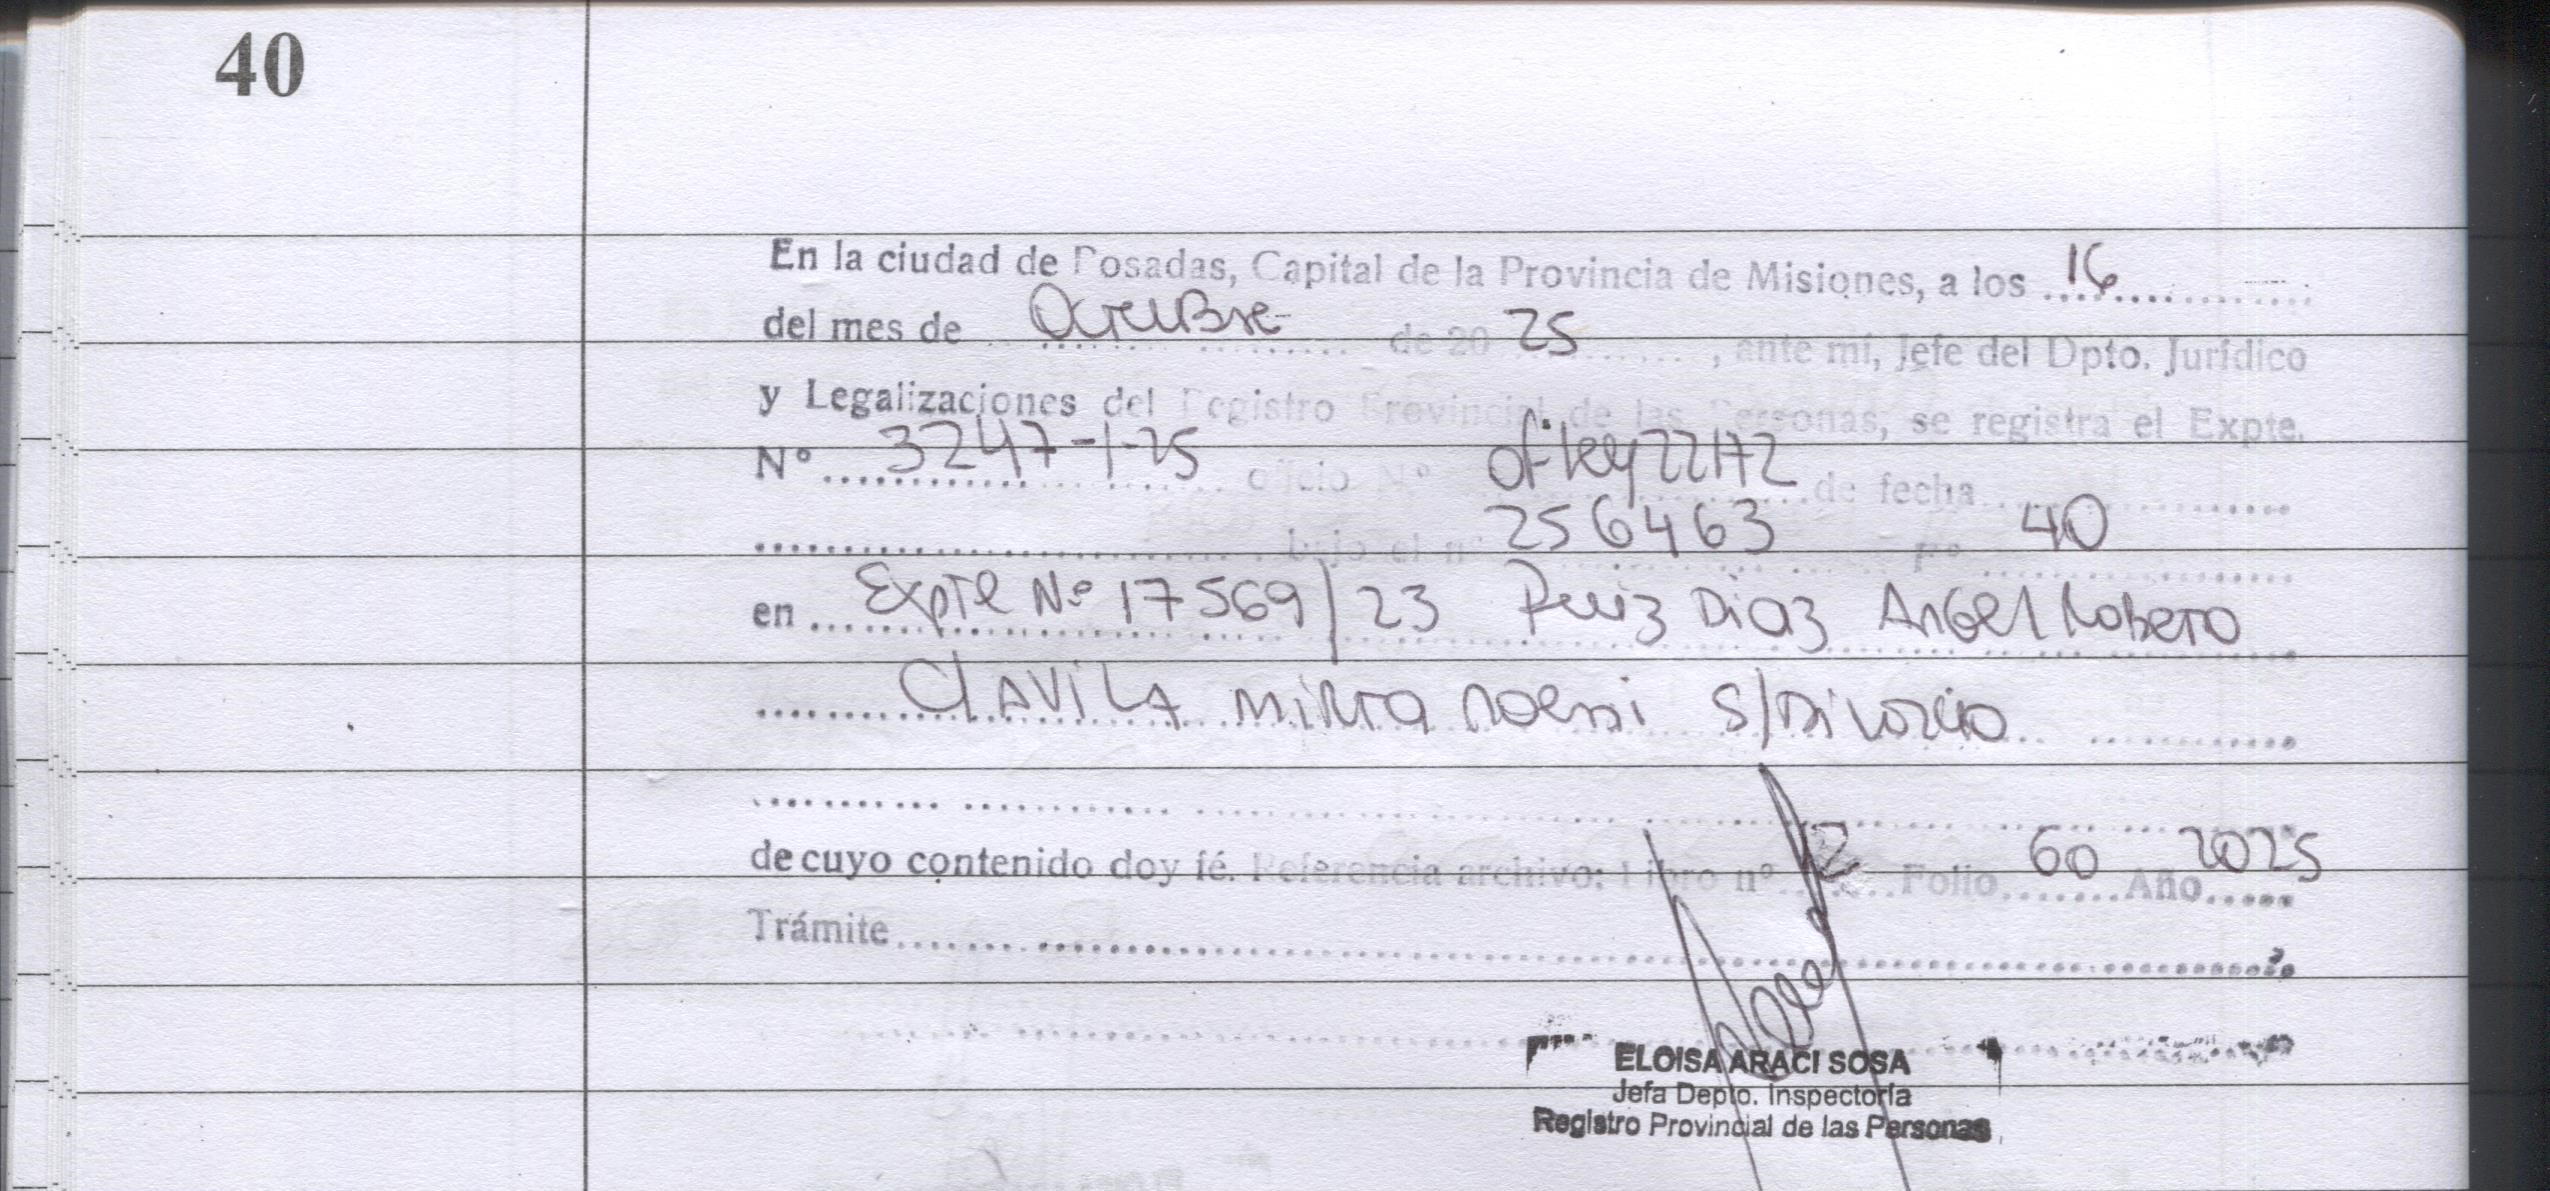 40
En la ciudad de Posadas, Capital de la Provincia de Misiones, a los 16
del mes de Octubre de 20 25, ante mí, Jefe del Dpto. Jurídico
y Legalizaciones del Registro Provincial de las Personas, se registra el Expte.
Nº 3247-1-25 oficio Nº of ley 22172 de fecha
bajo el nº 256463 Fº 40
en Expte Nº 17569/23 Ruiz Diaz Angel Robero
C/ AVILA MIRTA Noemi S/Divorcio
de cuyo contenido doy fé. Referencia archivo: Libro nº 12 Folio 60 Año 2025
Trámite
ELOISA ARACI SOSA
Jefa Depto. Inspectoría
Registro Provincial de las Personas